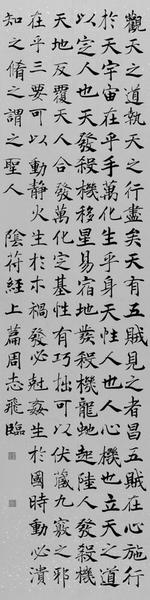 觀天之道執天之行盡矣天有五賊見之者昌五賊在心施行
於天宇宙在乎手萬化生乎身天性人也人心機也立天之道
以定人也天發殺機移星易宿地發殺機龍蛇起陸人發殺機
天地反覆天人合發萬化定基性有巧拙可以伏藏九竅之邪
在乎三要可以動靜火生於木禍發必尅姦生於國時動必潰
知之脩之謂之聖人 陰符經上篇周志飛臨